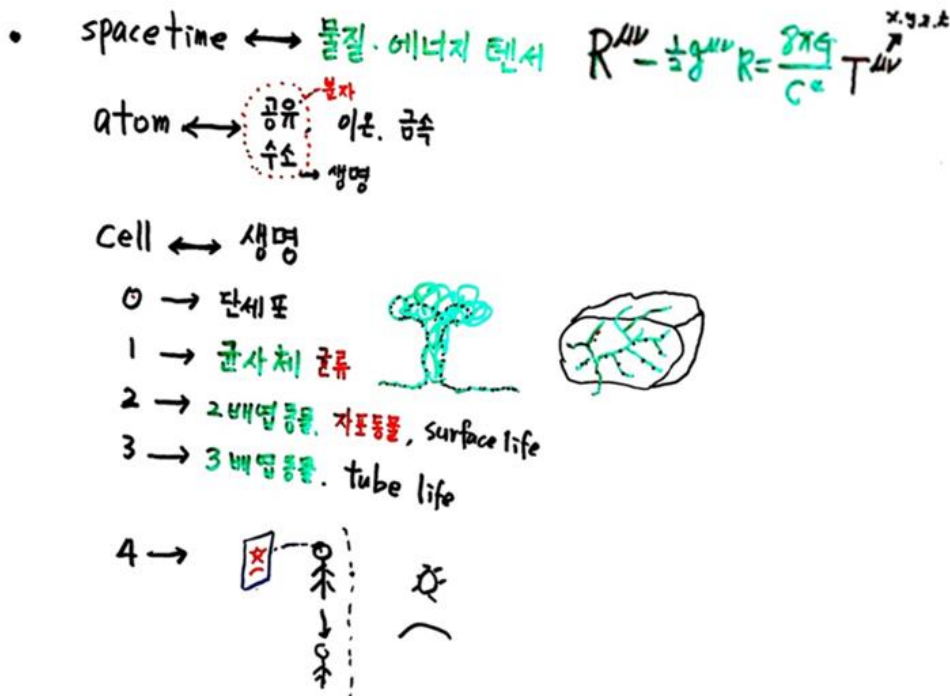 • spacetime ↔ 물질·에너지 텐서 R^μν - 1/2 g^μν R = 8πG/C⁴ T^μν x.y.z.t
분자
atom ↔ 공유, 이온. 금속
수소 → 생명
cell ↔ 생명
0 → 단세포
1 → 균사체 균류
2 → 2배엽동물. 자포동물, surface life
3 → 3배엽동물. tube life
4 →